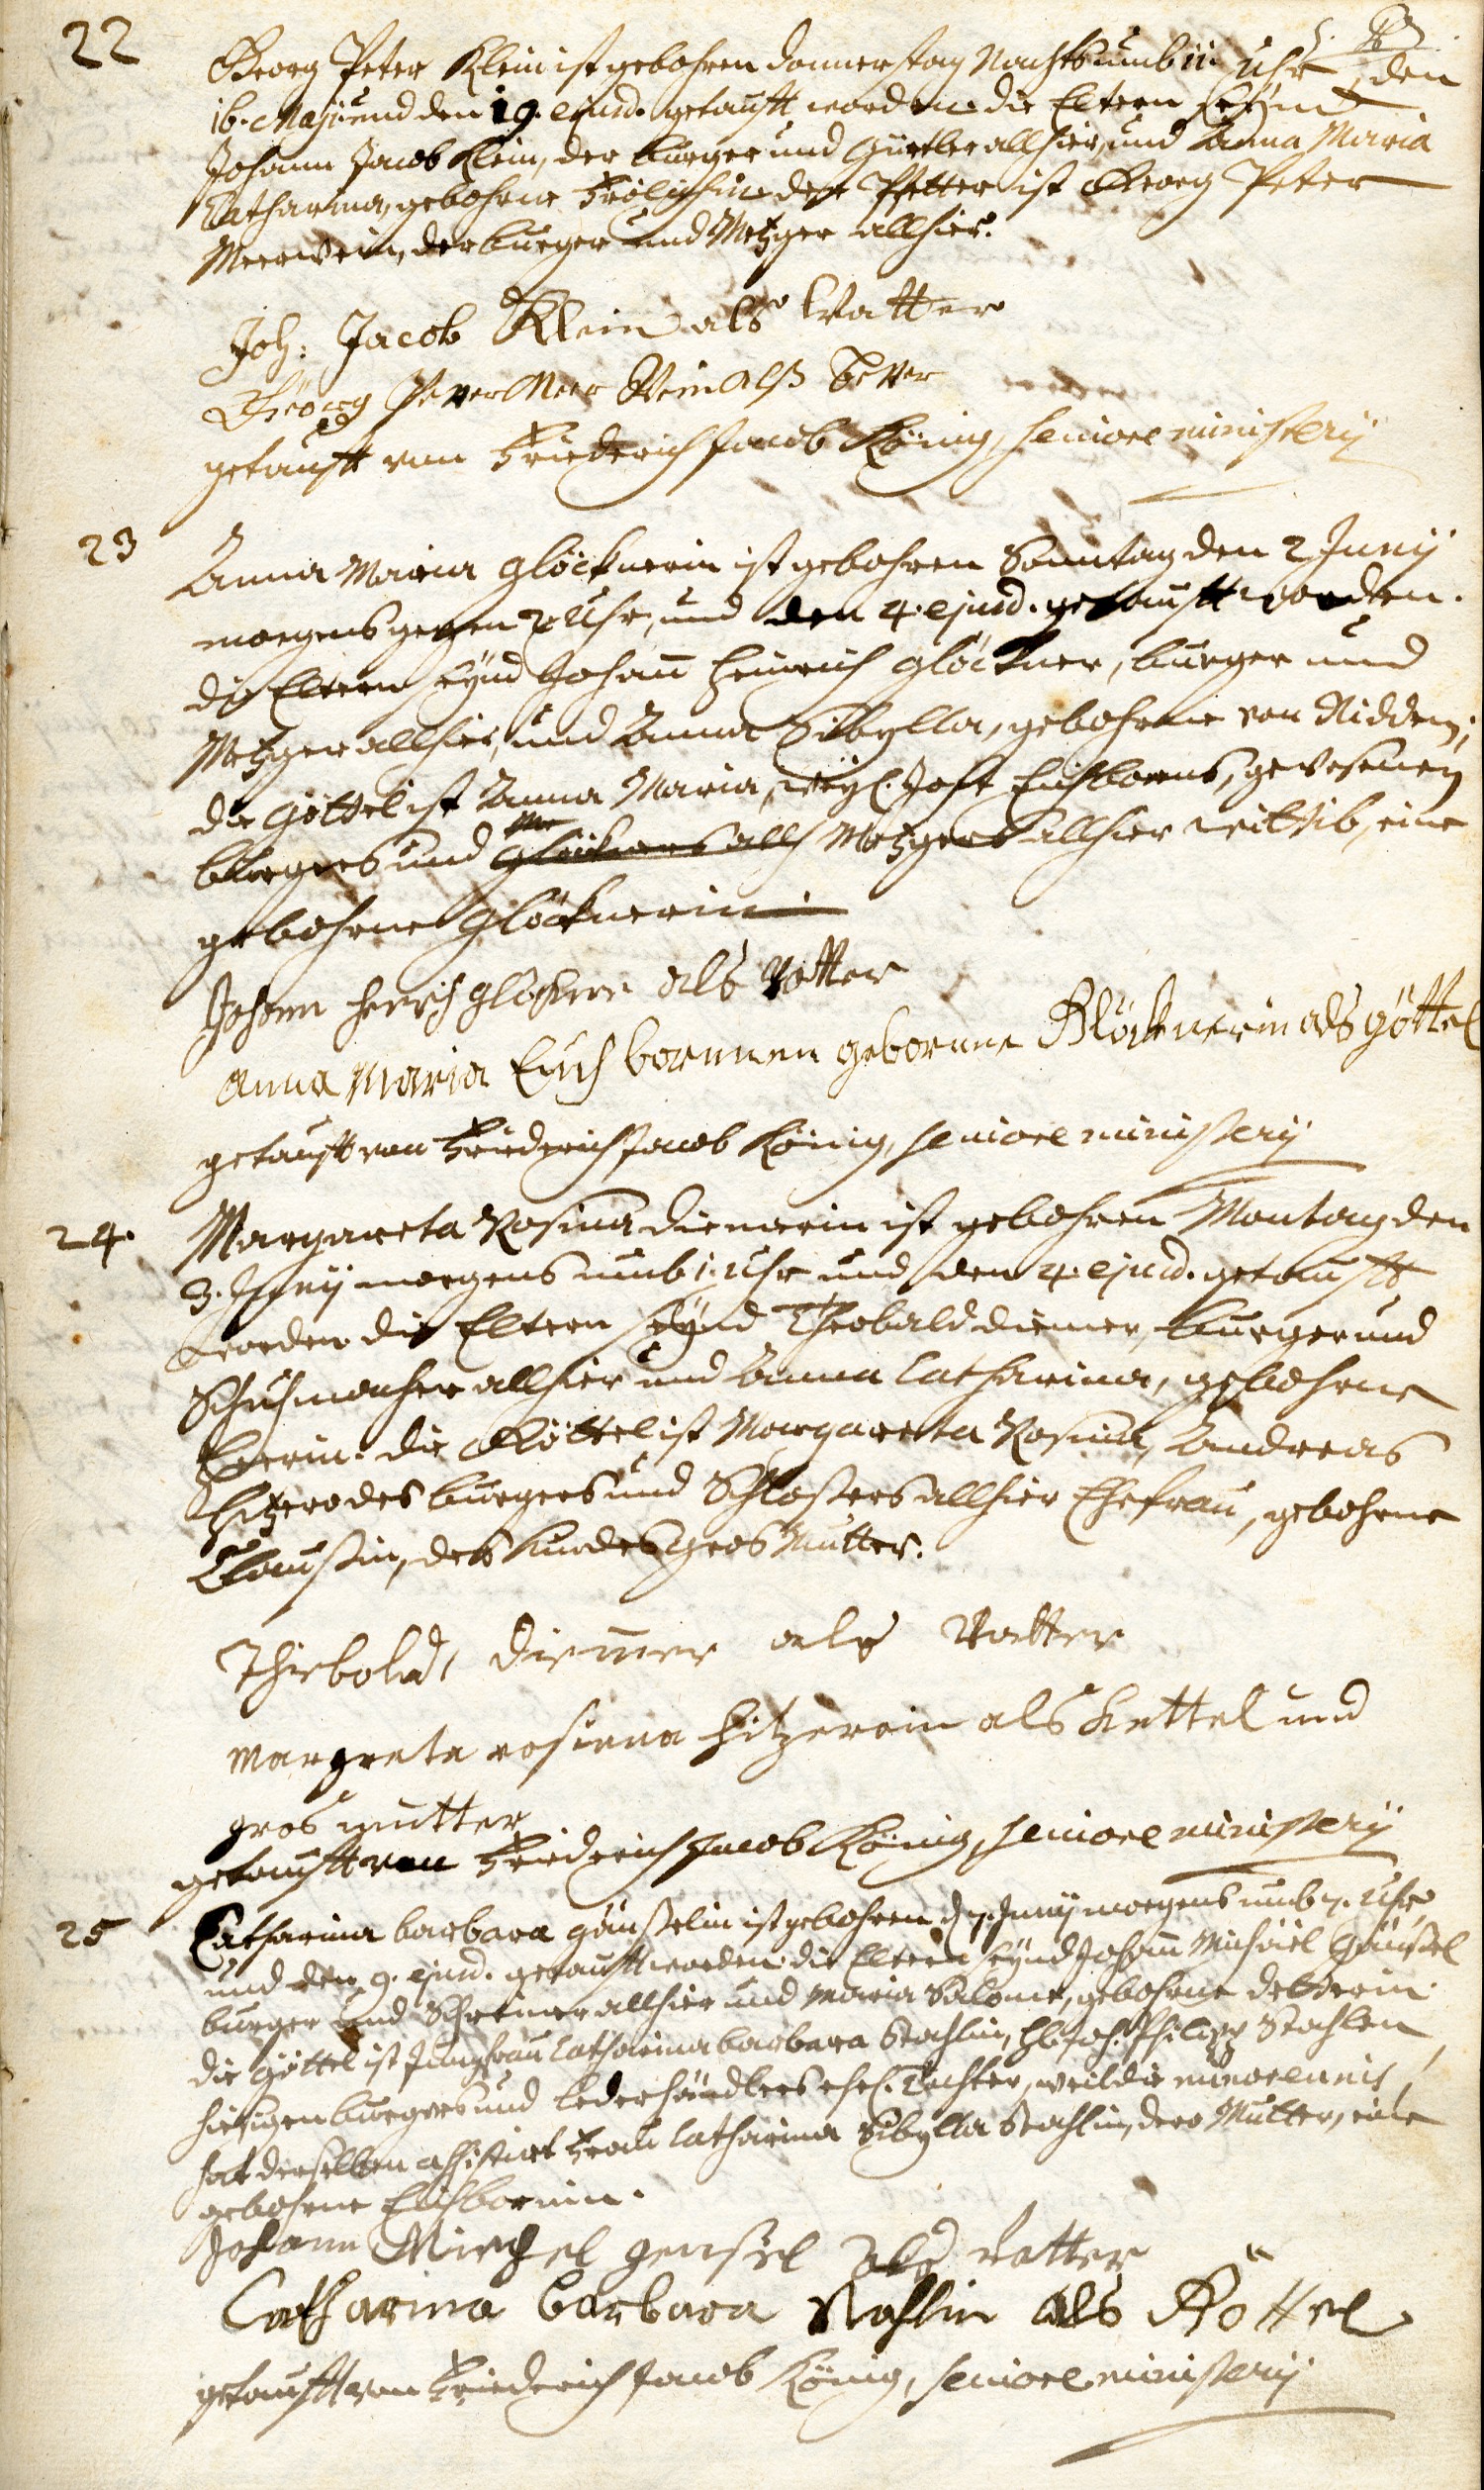 22 Georg Peter Klein ist gebohren Donnerstag Nachts umb 11 Uhr, den
16. Maji und den 19. ejusd. getaufft worden. die Eltern seynd
Johann Jacob Klein, der burger und Gürtler allhier, und Anna Maria
Catharina, gebohrne Frölichin der Pfetter ist Georg Peter
Meerwein, der burger und Metzger allhier.
Joh: Jacob Klein als Vatter
Geörg Peter Meer Wein alß Petter
getaufft von Friederich Jacob König, seniore ministerij
23 Anna Maria Glöcknerin ist gebohren Sonntag den 2 Junij
morgens gegen 2 Uhr, und den 4. ejusd. getaufft worden.
die Eltern seynd Johañ Heinrich Glöckner, burger und
Metzger allhier, und Anna Sibylla, gebohrne von Nidden;
die Göttel ist Anna Maria, weyl. Jost Eichborns, gewesenen
burgers und Metzgers allhier wittib, eine
gebohrne Glöcknerin.
Johann Henrich glöckner als Vatter
Anna Maria Eich bornnen gebornne Glöcknerin als göttel
getaufft von Friederich Jacob König, seniore ministerij
24. Margareta Rosina Diemerin ist gebohren Montag den
3. Junij morgens umb 1. Uhr und den 4. ejusd. getaufft
worden die Eltern seynd Theobald Diemer, burger und
Schuhmacher allhier und Anna Catharina, gebohrne
die Göttel ist Margareta Rosina, Andreas
Hitzero des burgers und Schlossers allhier Ehefrau, gebohrne
Claussin, des Kindes Gros Mutter.
Thiebold, Diemer als Vatter
Margreta rosiena Hitzeroin als Kettel und
gros mutter
getaufft von Friederich Jacob König, seniore ministerij
25 Catharina barbara Gänsselin ist gebohren d. 7. Junij morgens umb 7. Uhr
und den 9. ejusd. getaufft worden: die Eltern seynd Johañ Michäel Gänssel
burger und Schreiner allhier und Maria Salome, gebohrne Detterin
die Göttel ist Jungfrau Catharina barbara Stahlin, H. Joh. Philipp Stahlen
hiesigen burgers und lederhändlers ehel. Tochter, weil die minorennis,
hat derselben assistirt Frau Catharina Sibylla Stahlin, dero Mutter, eine
gebohrne Eichbornin.
Johann Miechel gensel als vatter
Catharina Barbara Stahlin als Göttel
getaufft von Friederich Jacob König, seniore ministerij